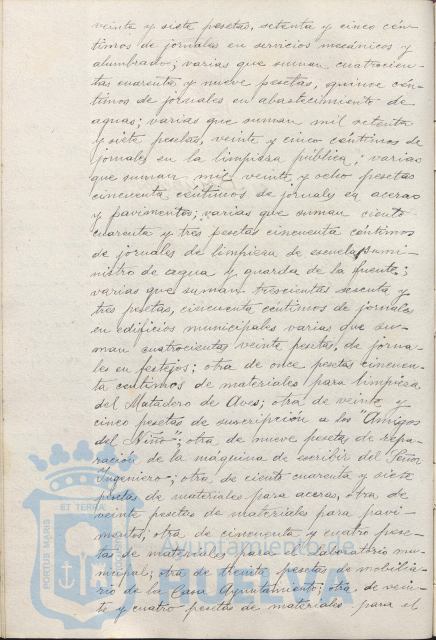 veinte y siete pesetas, setenta y cinco cén-
timos de jornales en servicios mecánicos y
alumbrado; varias que suman cuatrocien-
tas cuarenta y nueve pesetas, quince cén-
timos de jornales en abastecimiento de
aguas; varias que suman mil setenta
y siete pesetas, veinte y cinco céntimos de
jornales en la limpieza pública; varias
que suman mil veinte y ocho pesetas
cincuenta céntimos de jornales en aceras
y pavimentos; varias que suman ciento
cuarenta y tres pesetas cincuenta céntimos
de jornales de limpieza de escuelas, sumi-
nistro de agua y guarda de la fuente;
varias que suman trescientas sesenta y
tres pesetas, cincuenta céntimos de jornales
en edificios municipales varias que su-
man cuatrocientas veinte pesetas, de jorna-
les en festejos; otra de once pesetas cincuen-
ta céntimos de materiales para limpieza
del Matadero de Aves; otra de veinte y
cinco pesetas de suscripción a los "Amigos
del Niño"; otra de nueve pesetas de repa-
ración de la máquina de escribir del Señor
Ingeniero; otra de ciento cuarenta y siete
pesetas de materiales para aceras, otra de
veinte pesetas de materiales para pavi-
mentos; otra de cincuenta y cuatro pese-
tas de materiales para el Laboratorio mu-
nicipal; otra de treinta pesetas de mobilia-
rio de la Casa Ayuntamiento; otra de vein-
te y cuatro pesetas de materiales para el
PORTUS MARIS ET TERRAE
Ayuntamiento de
HUELVA